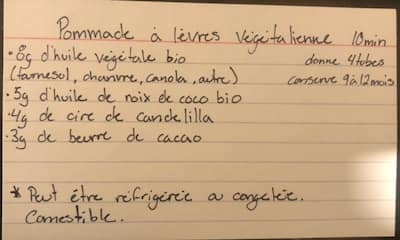 Pommade à lèvres végétalienne 10min
• 8g d'huile végétale bio donne 4 tubes
(tournesol, chanvre, canola, autre) conserve 9 à 12 mois
• 5g d'huile de noix de coco bio
• 4g de cire de candelilla
• 3g de beurre de cacao
* Peut être réfrigérée ou congelée.
Comestible.